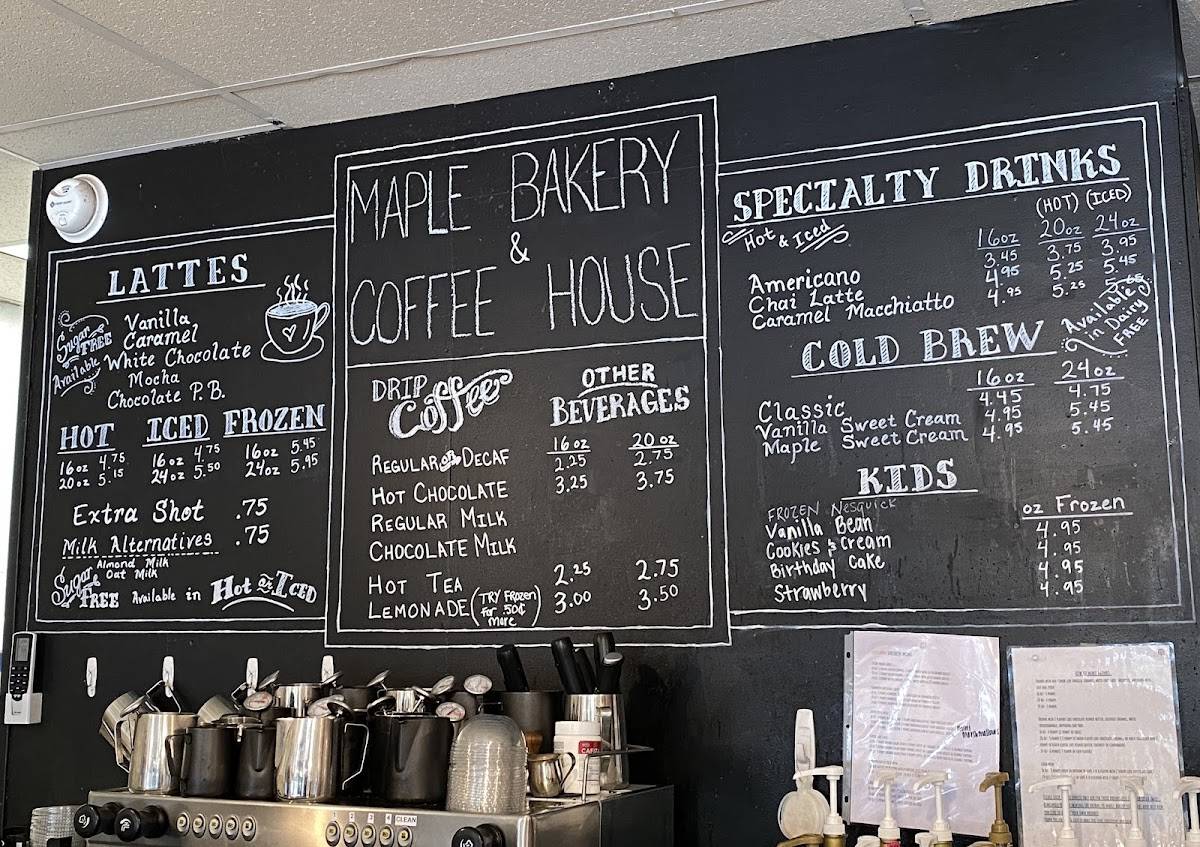 LATTES
Sugar FREE Available
Vanilla
Caramel
White Chocolate
Mocha
Chocolate P.B.
HOT ICED FROZEN
16oz 4.75 16oz 4.75 16oz 5.45
20oz 5.15 24oz 5.50 24oz 5.95
Extra Shot .75
Milk Alternatives .75
Almond Milk
Oat Milk
Sugar FREE Available in Hot or Iced
MAPLE BAKERY
&
COFFEE HOUSE
DRIP Coffee
OTHER
BEVERAGES
16 oz 20 oz
REGULAR or DECAF 2.25 2.75
HOT CHOCOLATE 3.25 3.75
REGULAR MILK
CHOCOLATE MILK
HOT TEA 2.25 2.75
LEMONADE (TRY Frozen for .50¢ more) 3.00 3.50
SPECIALTY DRINKS
Hot & Iced
(HOT) (ICED)
16oz 20oz 24oz
Americano 3.45 3.75 3.95
Chai Latte 4.95 5.25 5.45
Caramel Macchiatto 4.95 5.25 5.65
Available in Dairy FREE
COLD BREW
16oz 24oz
Classic 4.45 4.75
Vanilla Sweet Cream 4.95 5.45
Maple Sweet Cream 4.95 5.45
KIDS
oz Frozen
FROZEN Nesquick
Vanilla Bean 4.95
Cookies & Cream 4.95
Birthday Cake 4.95
Strawberry 4.95
CLEAN